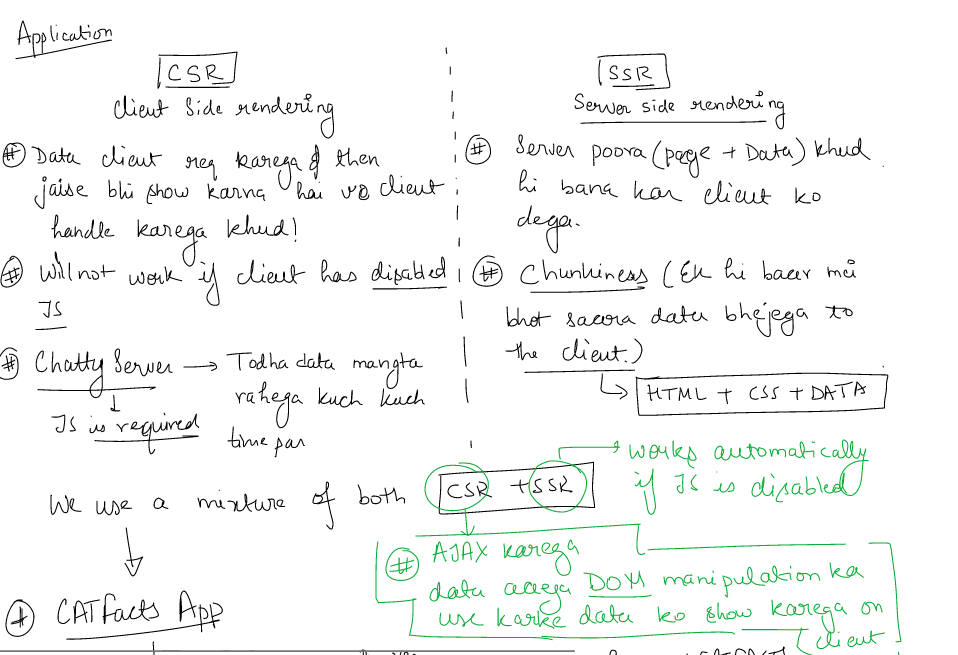 Application
CSR
Client Side rendering
# Data client req karega & then
jaise bhi show karna hai vo client
handle karega khud!
# Will not work if client has disabled
JS
# Chatty Server → Todha data mangta
rahega kuch kuch
time par
↓
JS is required
SSR
Server side rendering
# Server poora (page + Data) khud
hi bana kar client ko
dega.
# Chunkiness (Ek hi baar mei
bhot saara data bhejega to
the client.)
↳ HTML + CSS + DATA
We use a mixture of both CSR + SSR
→ works automatically
if JS is disabled
# AJAX karega
data aaega DOM manipulation ka
use karke data ko show karega on
client
CATFacts App